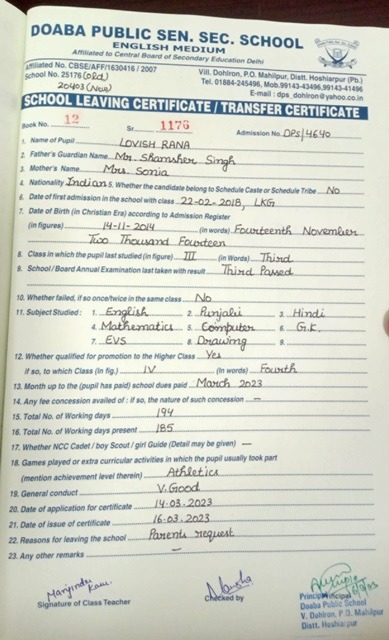 DOABA PUBLIC SEN. SEC. SCHOOL
ENGLISH MEDIUM
Affiliated to Central Board of Secondary Education Delhi
Affiliated No. CBSE/AFF/1630416 / 2007
School No. 25176 (old)
20403 (New)
Vill. Dohlron, P.O. Mahilpur, Distt. Hoshiarpur (Pb.)
Tel. 01884-245496, Mob.99143-43496,99143-41496
E-mail : dps_dohlron@yahoo.co.in
SCHOOL LEAVING CERTIFICATE / TRANSFER CERTIFICATE
Book No. 12 Sr. 1176 Admission No. DPS/4640
1. Name of Pupil LOVISH RANA
2. Father's Guardian Name Mr. Shamsher Singh
3. Mother's Name Mrs. Sonia
4. Nationality Indian 5. Whether the candidate belong to Schedule Caste or Schedule Tribe No
6. Date of first admission in the school with class 22-02-2018, LKG
7. Date of Birth (in Christian Era) according to Admission Register
(in figures) 14-11-2014 (in words) Fourteenth November
Two Thousand Fourteen
8. Class in which the pupil last studied (in figure) III (in Words) Third
9. School / Board Annual Examination last taken with result Third Passed
10. Whether failed, if so once/twice in the same class No
11. Subject Studied : 1. English 2. Punjabi 3. Hindi
4. Mathematics 5. Computer 6. G.K.
7. EVS 8. Drawing 9.
12. Whether qualified for promotion to the Higher Class Yes
if so, to which Class (in fig.) IV (in words) Fourth
13. Month up to the (pupil has paid) school dues paid March 2023
14. Any fee concession availed of : if so, the nature of such concession —
15. Total No. of Working days 194
16. Total No. of Working days present 185
17. Whether NCC Cadet / boy Scout / girl Guide (Detail may be given) —
18. Games played or extra curricular activities in which the pupil usually took part
(mention achievement level therein) Athletics
19. General conduct V. Good
20. Date of application for certificate 14-03-2023
21. Date of issue of certificate 16-03-2023
22. Reasons for leaving the school Parents request
23. Any other remarks —
Signature of Class Teacher
Checked by
Principal
Doaba Public School
V. Dohlron, P.O. Mahilpur
Distt. Hoshiarpur